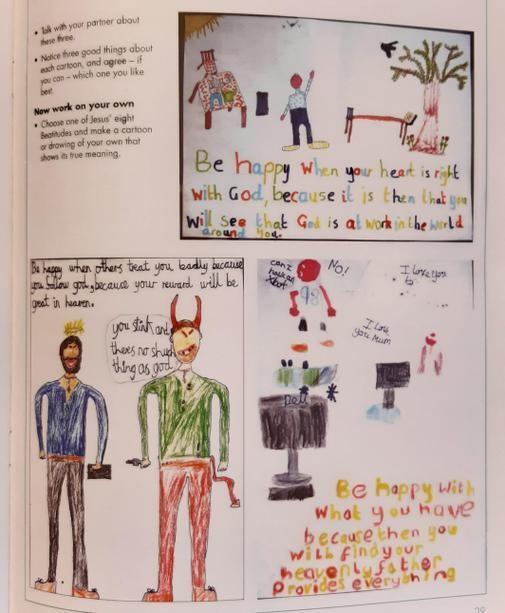 • Talk with your partner about
these three.
• Notice three good things about
each cartoon, and agree – if
you can – which one you like
best.
New work on your own
• Choose one of Jesus' eight
Beatitudes and make a cartoon
or drawing of your own that
shows its true meaning.
Be happy when your heart is right
with God, because it is then that you
will see that God is at work in the world
around you.
Be happy when others treat you badly because
you follow god, because your reward will be
great in heaven.
you stink and
theres no shuch
thing as god
can I
have an
Xbox
No!
98
I love you
to
I love
you mum
Dell
Be happy with
what you have
because then you
will find your
heavenly father
provides everything